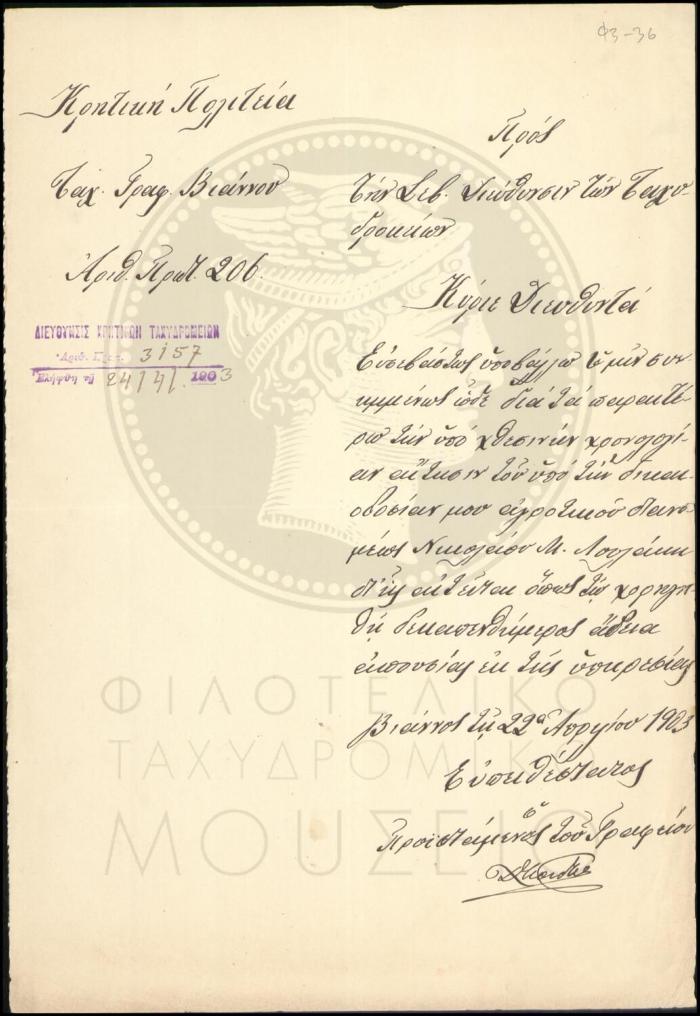 Φ3-36
Κρητική Πολιτεία
Ταχ. Γραφ. Βιάννου
Αριθ. Πρωτ. 206
ΔΙΕΥΘΥΝΣΙΣ ΚΡΗΤΙΚΩΝ ΤΑΧΥΔΡΟΜΕΙΩΝ
Αριθ. Πρωτ. 3157
Ελήφθη τη 24/4/ 1903
Πρός
Τήν Σεβ. Διεύθυνσιν τών Ταχυ
δρομείων
Κύριε Διευθυντά
Ευσεβάστως υποβάλλω υμίν συν-
ημμένως ώδε διά τά περαιτέ-
ρω τήν υπό χθεσινήν χρονολογί-
αν αίτησιν του υπό τήν δικαι-
οδοσίαν μου αγροτικού διανο-
μέως Νικολάου Μ.
δι' ής αιτείται όπως τώ χορηγη-
θή δεκαπενθήμερος άδεια
απουσίας εκ τής υπηρεσίας
Βιάννος τη 22α Απριλίου 1903
Ευπειθέστατος
ο
Προϊστάμενος του Γραφείου
ΦΙΛΟΤΕΛΙΚΟ
ΤΑΧΥΔΡΟΜΙΚΟ
ΜΟΥΣΕΙΟ